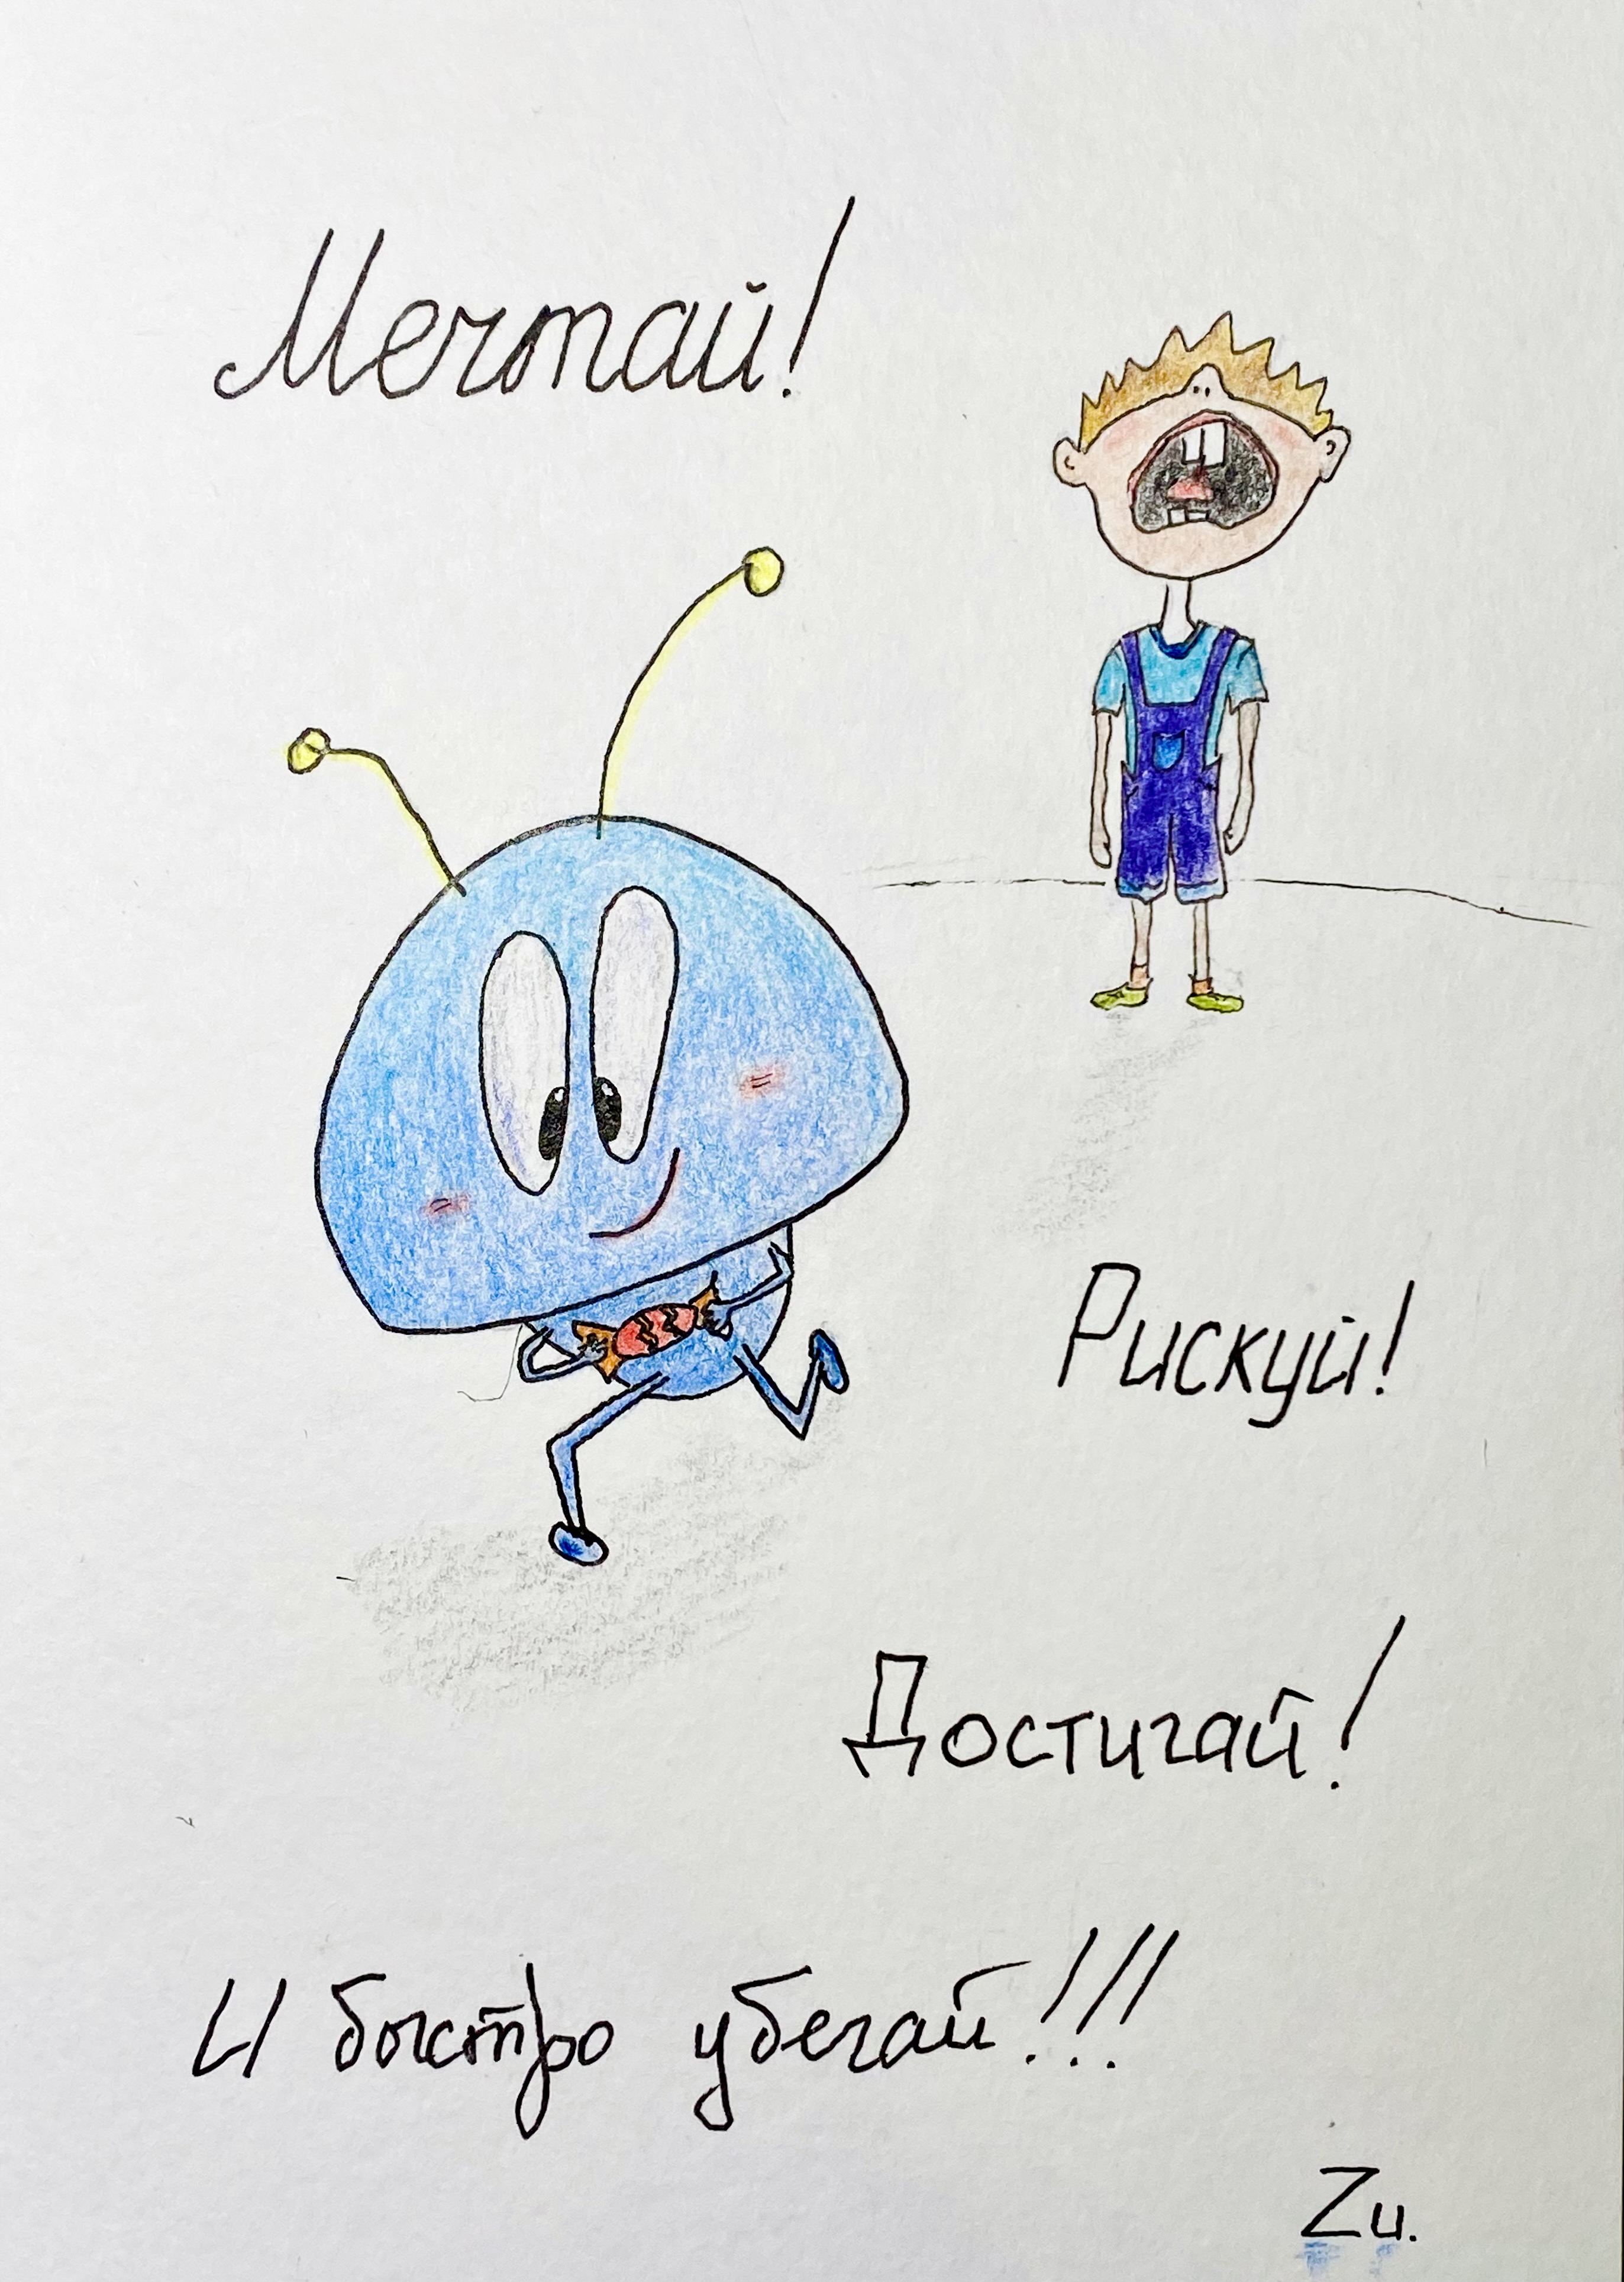 Мечтай!
Рискуй!
Достигай!
И быстро убегай!!!
Zu.